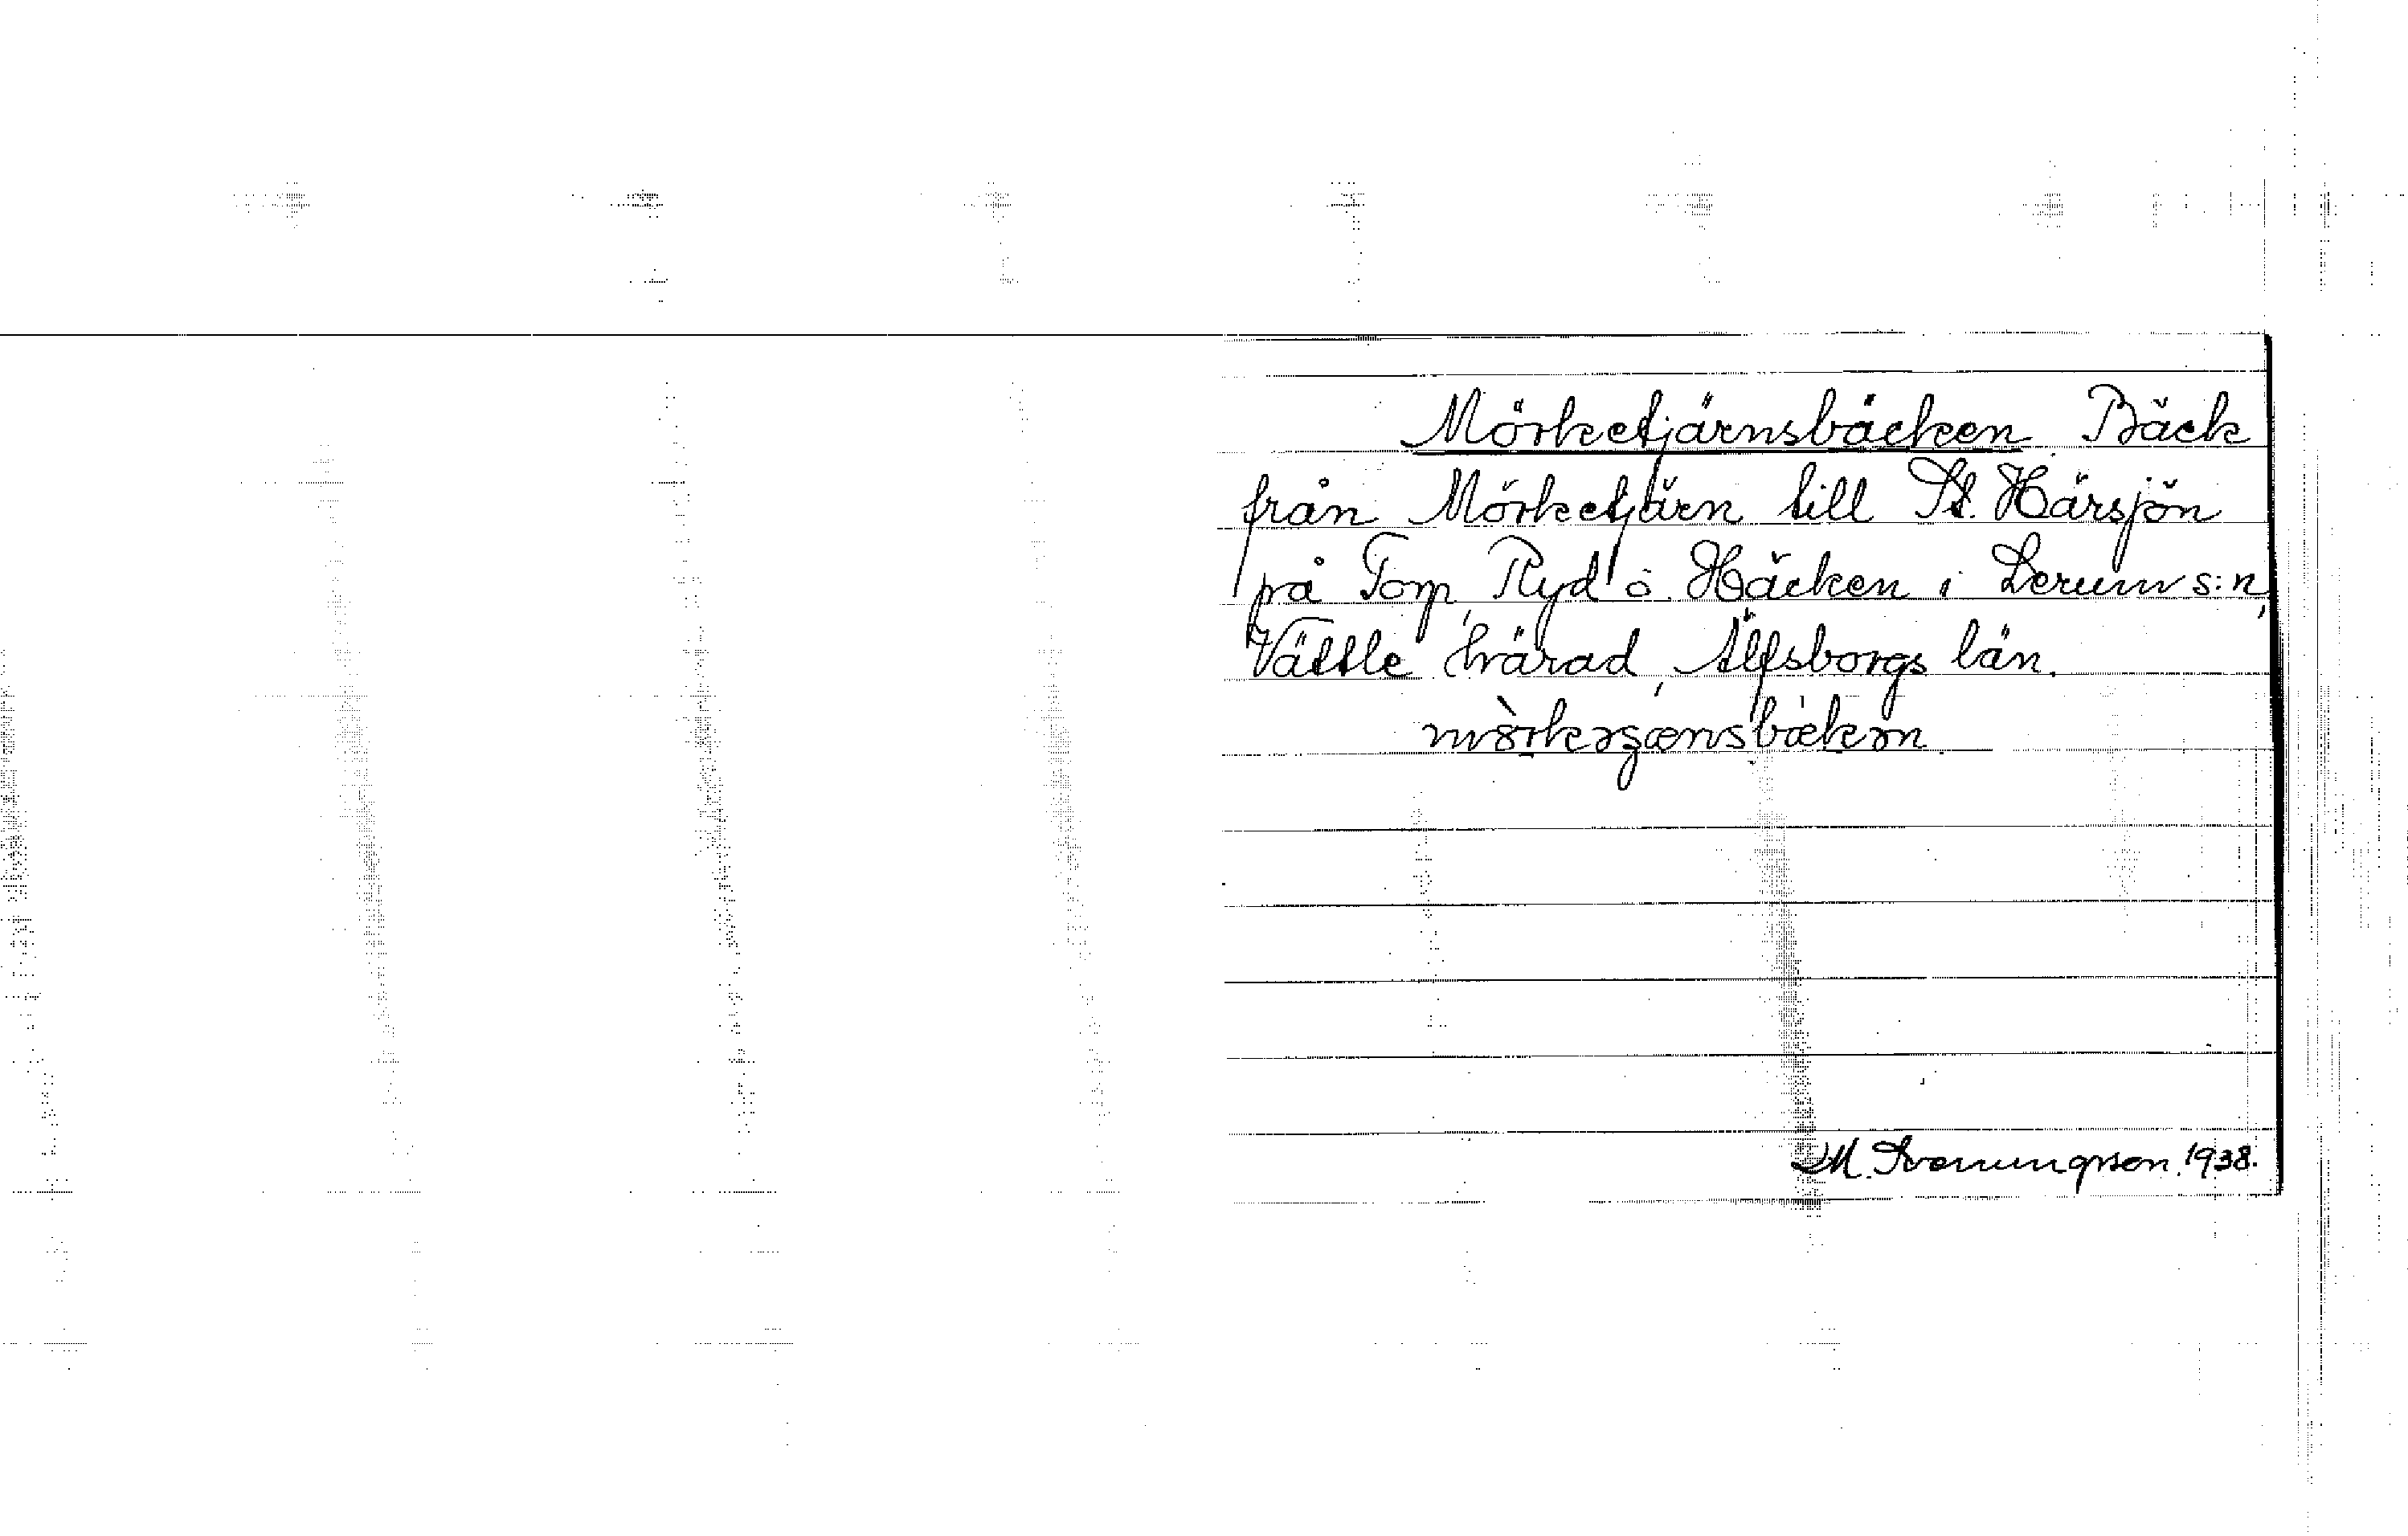 Mörketjärnsbäcken Bäck
från Mörketjärn till St. Härsjön
på Torp, Ryd o. Häcken i Lerum s:n,
Vättle härad, Älfsborgs län.
1938.